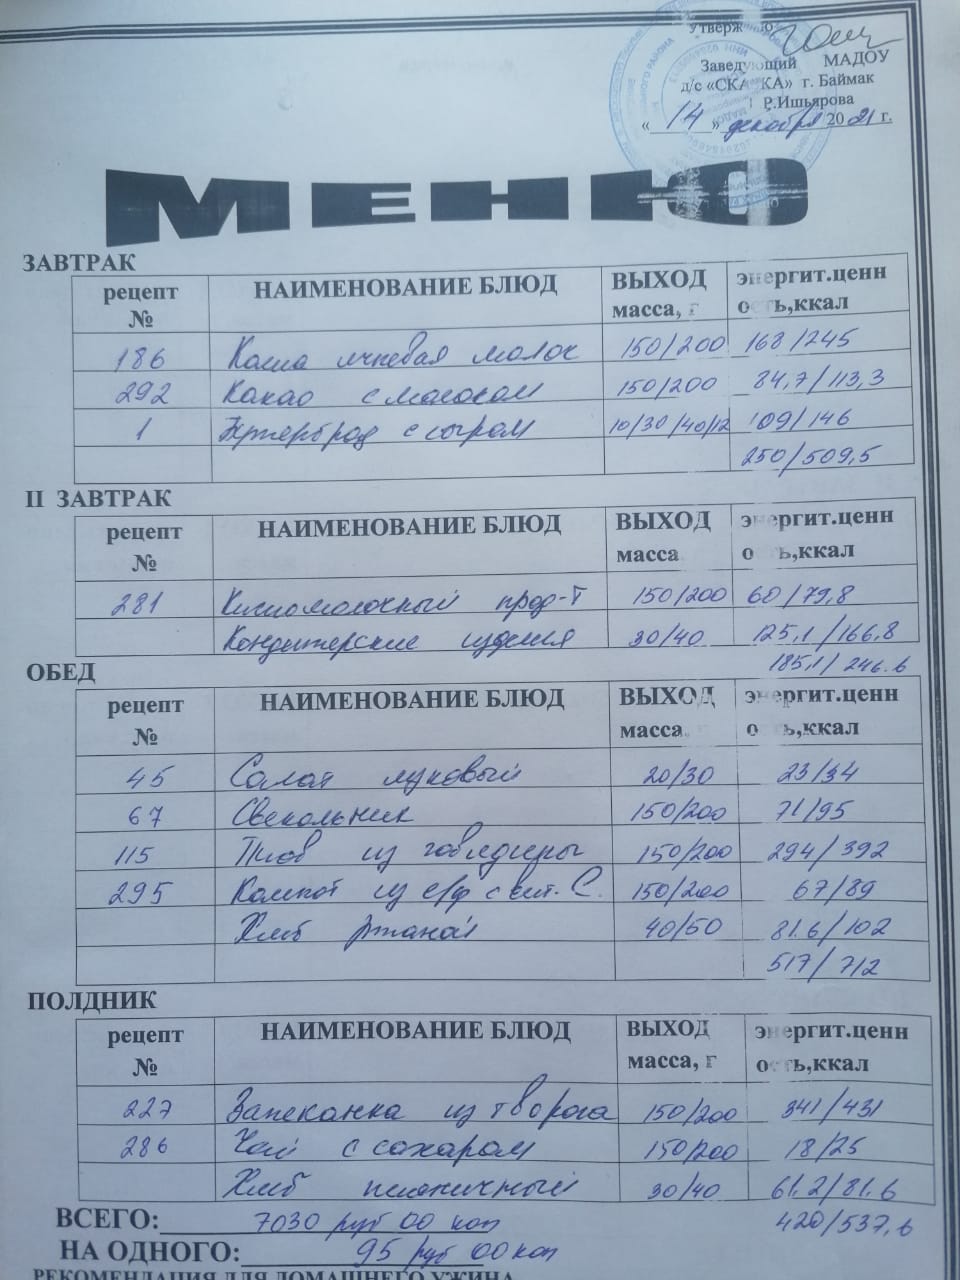 Утверж
Заведующий МАДОУ
д/с «СКА КА» г. Баймак
Р.Ишьярова
« 14 » декабря 2021 г.
МЕНЮ
ЗАВТРАК
рецепт № НАИМЕНОВАНИЕ БЛЮД ВЫХОД масса, г энергит.ценн ость,ккал
186 Каша ячневая молоч 150/200 168/245
292 Какао с молоком 150/200 84,7/113,3
1 Бутерброд с сыром 10/30/40/12 109/146
250/509,5
II ЗАВТРАК
рецепт № НАИМЕНОВАНИЕ БЛЮД ВЫХОД масса энергит.ценн о ь,ккал
281 Кисломолочный прод-т 150/200 60/79,8
Кондитерские изделия 30/40 125,1/166,8
185,1/246.6
ОБЕД
рецепт № НАИМЕНОВАНИЕ БЛЮД ВЫХОД масса, энергит.ценн о ть,ккал
45 Салат луковый 20/30 23/34
67 Свекольник 150/200 71/95
115 Плов из говядины 150/200 294/392
295 Компот из с/ф с вит. С. 150/200 67/89
Хлеб ржаной 40/50 81.6/102
517/712
ПОЛДНИК
рецепт № НАИМЕНОВАНИЕ БЛЮД ВЫХОД масса, г энергит.ценн ость,ккал
227 Запеканка из творога 150/200 341/431
286 Чай с сахаром 150/200 18/25
Хлеб пшеничный 30/40 61.2/81.6
ВСЕГО: 7030 руб 00 коп 420/537,6
НА ОДНОГО: 95 руб 00 коп
РЕКОМЕНДАЦИЯ ДЛЯ ДОМАШНЕГО УЖИНА